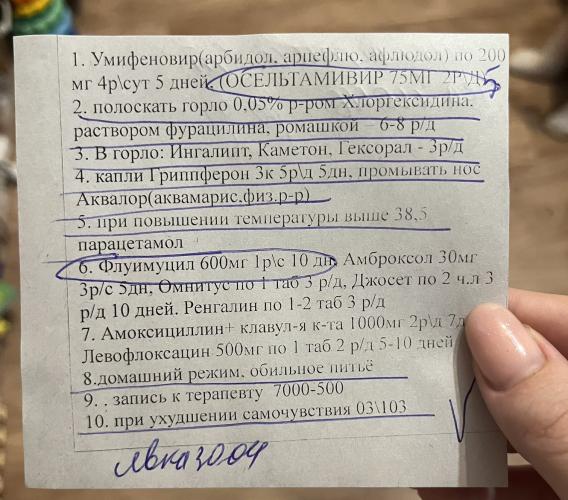 1. Умифеновир(арбидол, арпефлю, афлюдол) по 200
мг 4р\сут 5 дней. (ОСЕЛЬТАМИВИР 75МГ 2Р\Д) 5
2. полоскать горло 0,05% р-ром Хлоргексидина.
раствором фурацилина, ромашкой 6-8 р/д
3. В горло: Ингалипт, Каметон, Гексорал - 3р/д
4. капли Гриппферон 3к 5р\д 5дн, промывать нос
Аквалор(аквамарис,физ.р-р)
5. при повышении температуры выше 38,5
парацетамол
6. Флуимуцил 600мг 1р\с 10 дн, Амброксол 30мг
3р/с 5дн, Омнитус по 1 таб 3 р/д, Джосет по 2 ч.л 3
р/д 10 дней. Ренгалин по 1-2 таб 3 р/д
7. Амоксициллин+ клавул-я к-та 1000мг 2р\д 7д
Левофлоксацин 500мг по 1 таб 2 р/д 5-10 дней
8.домашний режим, обильное питьё
9. . запись к терапевту 7000-500
10. при ухудшении самочувствия 03\103